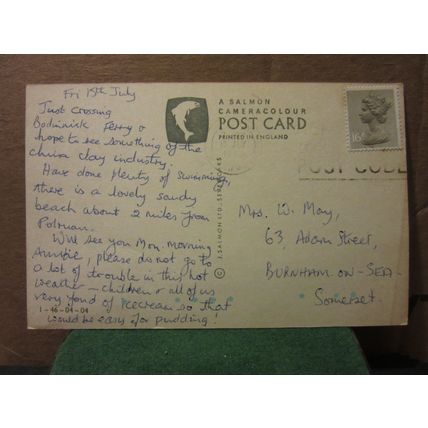 Fri 15th July
Just crossing
Bodinnick Ferry &
hope to see something of the
china clay industry.
Have done plenty of swimming,
there is a lovely sandy
beach about 2 miles from
Polruan.
Will see you Mon. morning
Auntie, please do not go to
a lot of trouble in this hot
weather — children & all of us
very fond of icecream so that
would be easy for pudding!
1-46-04-04
A SALMON
CAMERACOLOUR
POST CARD
PRINTED IN ENGLAND
© J. SALMON LTD., SEVENOAKS
16P
POST CODE
Mrs. W. May,
63, Adam Street,
BURNHAM-ON-SEA
Somerset.